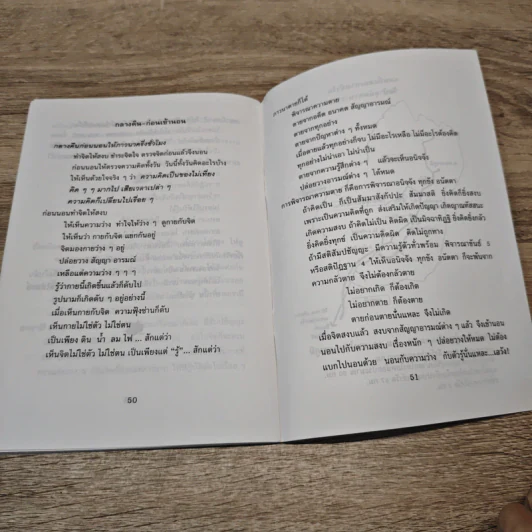 กลางคืน-ก่อนเข้านอน
กลางคืนก่อนนอนให้ภาวนาครึ่งชั่วโมง
ทำจิตให้สงบ ชำระจิตใจ ตรวจจิตก่อนแล้วจึงนอน
ก่อนนอนให้ตรวจความคิดทั้งวัน วันนี้ทั้งวันคิดอะไรบ้าง
ให้เห็นด้วยใจจริง ๆ ว่า ความคิดเป็นของไม่เที่ยง
คิด ๆ ๆ มากไป เสียเวลาเปล่า ๆ
ความคิดก็เปลี่ยนไปเรื่อย ๆ
ก่อนนอนทำจิตให้สงบ
ให้เห็นความว่าง ทำใจให้ว่าง ๆ ดูกายกับจิต
ให้เห็นว่า กายกับจิต แยกกันอยู่
จิตมองกายว่าง ๆ อยู่
ปล่อยวาง สัญญา อารมณ์
เหลือแต่ความว่าง ๆ ๆ ๆ
รู้ว่ากายนี้เกิดขึ้นแล้วก็ดับไป
รูปนามก็เกิดดับ ๆ อยู่อย่างนี้
เมื่อเห็นกายกับจิต ความฟุ้งซ่านก็ดับ
เห็นกายไม่ใช่ตัว ไม่ใช่ตน
เป็นเพียง ดิน น้ำ ลม ไฟ ... สักแต่ว่า
เห็นจิตไม่ใช่ตัว ไม่ใช่ตน เป็นเพียงแต่ "รู้"... สักแต่ว่า
50
ภาวนาตายก็ได้
พิจารณาความตาย
ตายจากอดีต อนาคต สัญญาอารมณ์
ตายจากทุกอย่าง
ตายจากปัญหาต่าง ๆ ทั้งหมด
เมื่อตายแล้วทุกอย่างก็จบ ไม่มีอะไรเหลือ ไม่มีอะไรต้องคิด
ทุกอย่างไม่น่าเอา ไม่น่าเป็น
ตายจากความรู้สึกต่าง ๆ แล้วจะเห็นอนิจจัง
ปล่อยวางอารมณ์ต่าง ๆ ได้หมด
การพิจารณาความตาย ก็คือการพิจารณาอนิจจัง ทุกขัง อนัตตา
ถ้าคิดเป็น ก็เป็นสัมมาสังกัปปะ สัมมาสติ ยิ่งคิดก็ยิ่งสงบ
เพราะเป็นความคิดที่ถูก ส่งเสริมให้เกิดปัญญา เกิดญาณทัสสนะ
เกิดความสงบ ถ้าคิดไม่เป็น คิดผิด เป็นมิจฉาทิฏฐิ ยิ่งคิดยิ่งกลัว
ยิ่งคิดยิ่งทุกข์ เป็นความคิดผิด คิดไม่ถูกทาง
ถ้ามีสติสัมปชัญญะ มีความรู้ตัวทั่วพร้อม พิจารณาขันธ์ ๕
หรือสติปัฏฐาน ๔ ให้เห็นอนิจจัง ทุกขัง อนัตตา ก็จะพ้นจาก
ความกลัวตาย จึงไม่ต้องกลัวตาย
ไม่อยากเกิด ก็ต้องเกิด
ไม่อยากตาย ก็ต้องตาย
ตายก่อนตายนั้นแหละ จึงไม่เกิด
เมื่อจิตสงบแล้ว สงบจากสัญญาอารมณ์ต่าง ๆ แล้ว จึงเข้านอน
นอนไปกับความสงบ เรื่องหนัก ๆ ปล่อยวางให้หมด ไม่ต้อง
แบกไปนอนด้วย นอนกับความว่าง กับตัวรู้นั่นแหละ...เอวัง!
51